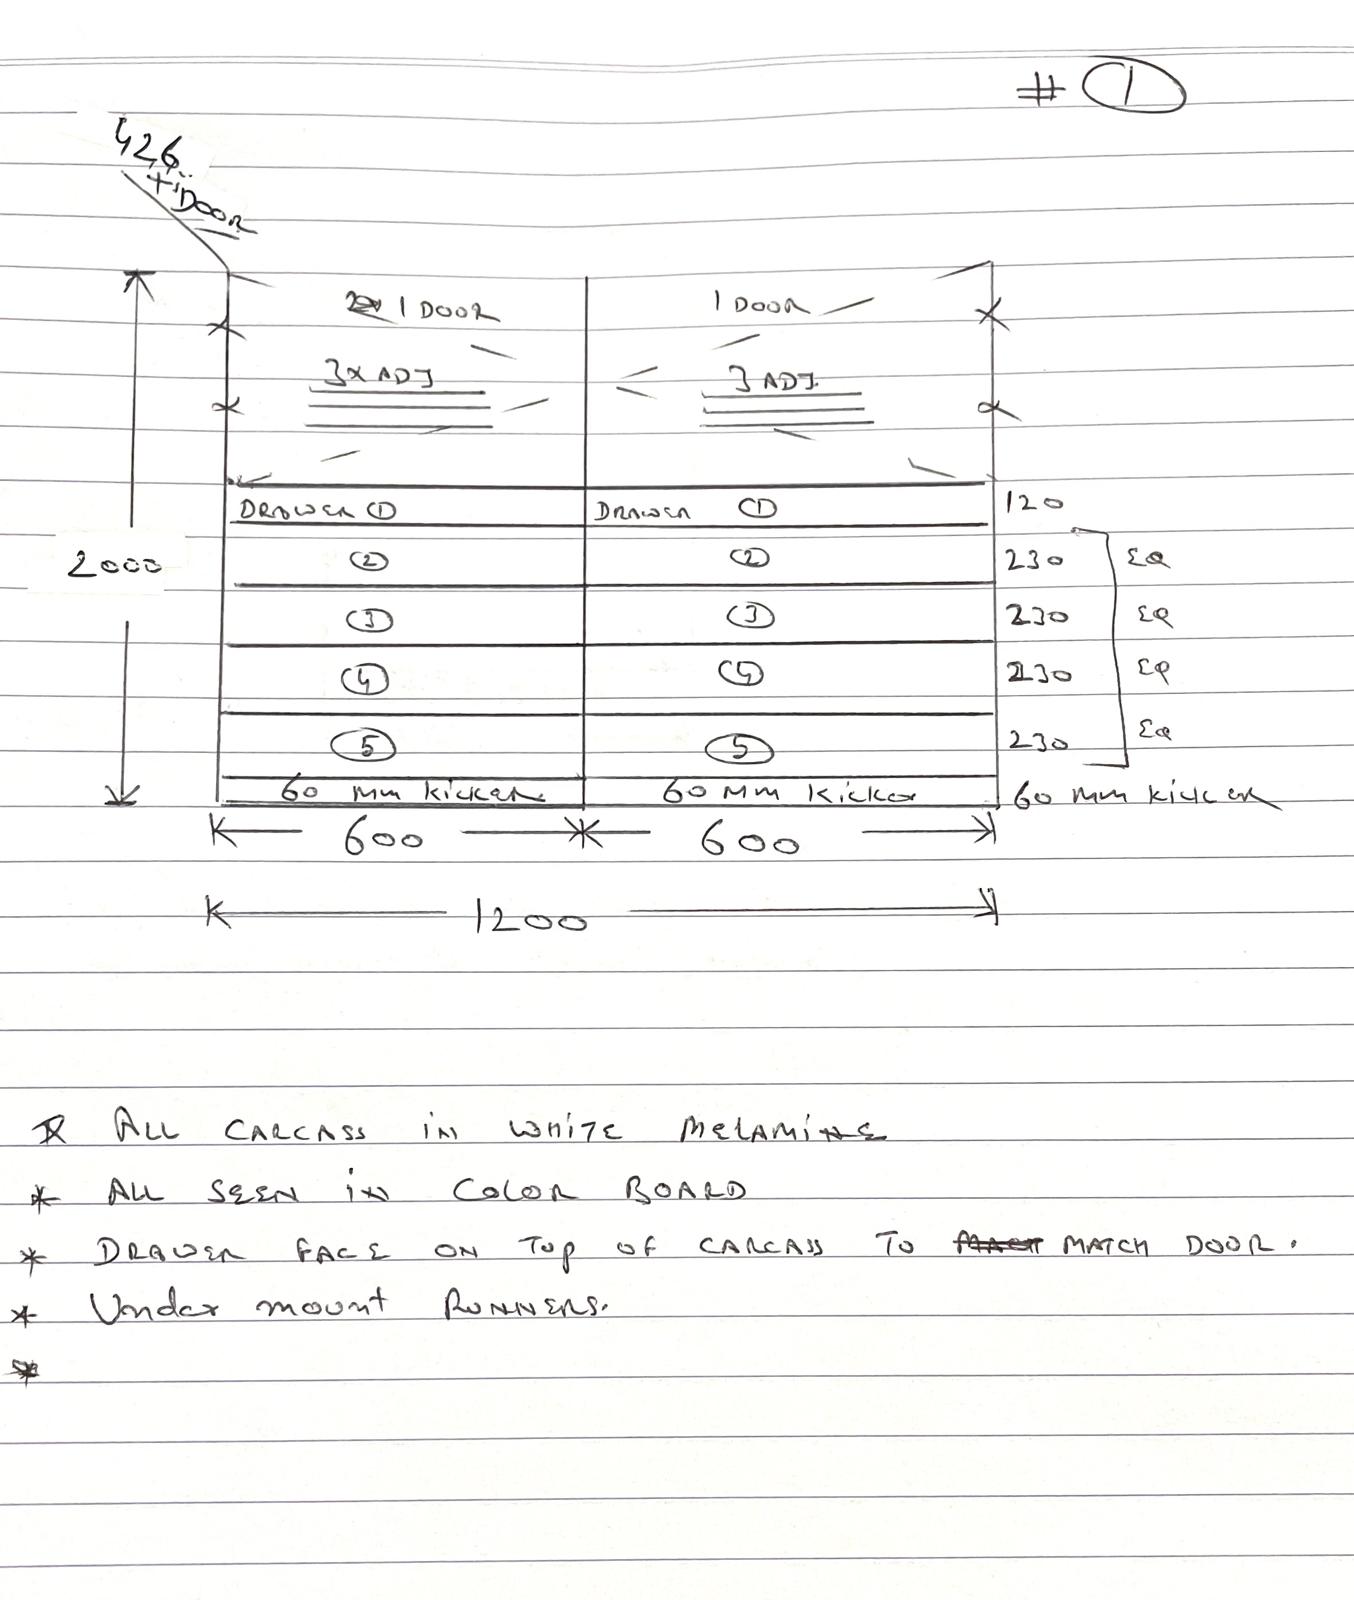 # 1
426
+ DOOR
1 DOOR 1 DOOR
3x ADJ 3 ADJ.
DRAWER 1 DRAWER 1 120
2 2 230 EQ
3 3 230 EQ
4 4 230 EQ
2000
5 5 230 EQ
60 MM KICKER 60 MM KICKER 60 MM KICKER
600 600
1200
* ALL CARCASS IN WHITE MELAMINE
* ALL SEEN IN COLOR BOARD
* DRAWER FACE ON TOP OF CARCASS TO MATCH DOOR.
* Under mount RUNNERS.
*